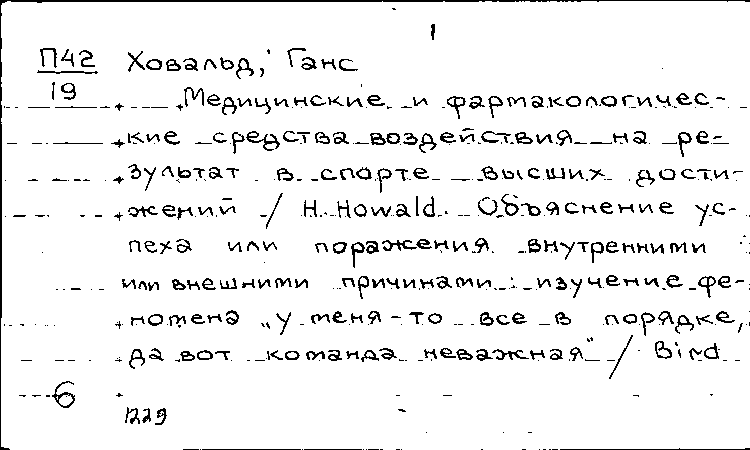 1
П42 Ховальд, Ганс
19
Медицинские и фармакологичес-
кие средства воздействия на ре-
зультат в спорте высших дости-
жений / H. Howald. Объяснение ус-
пеха или поражения внутренними
или внешними причинами: изучение фе-
номена „у меня-то все в порядке,
да вот команда неважная" / Bird
6
1229